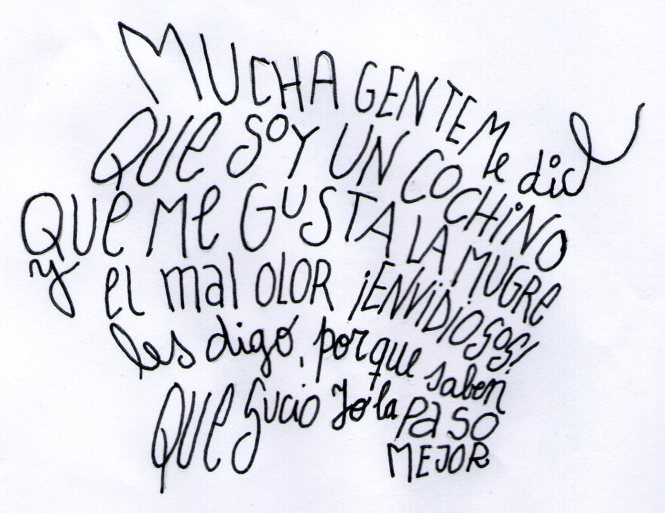 MUCHA GENTE Me dice
QUe SOY UN COCHiNO
QUe Me GUSTA LA MUGRe
y el mal OLOR ¡ENViDiOSOS!
les digo, porque saben
QUe Sucio Yo la PaSO
MEJOR